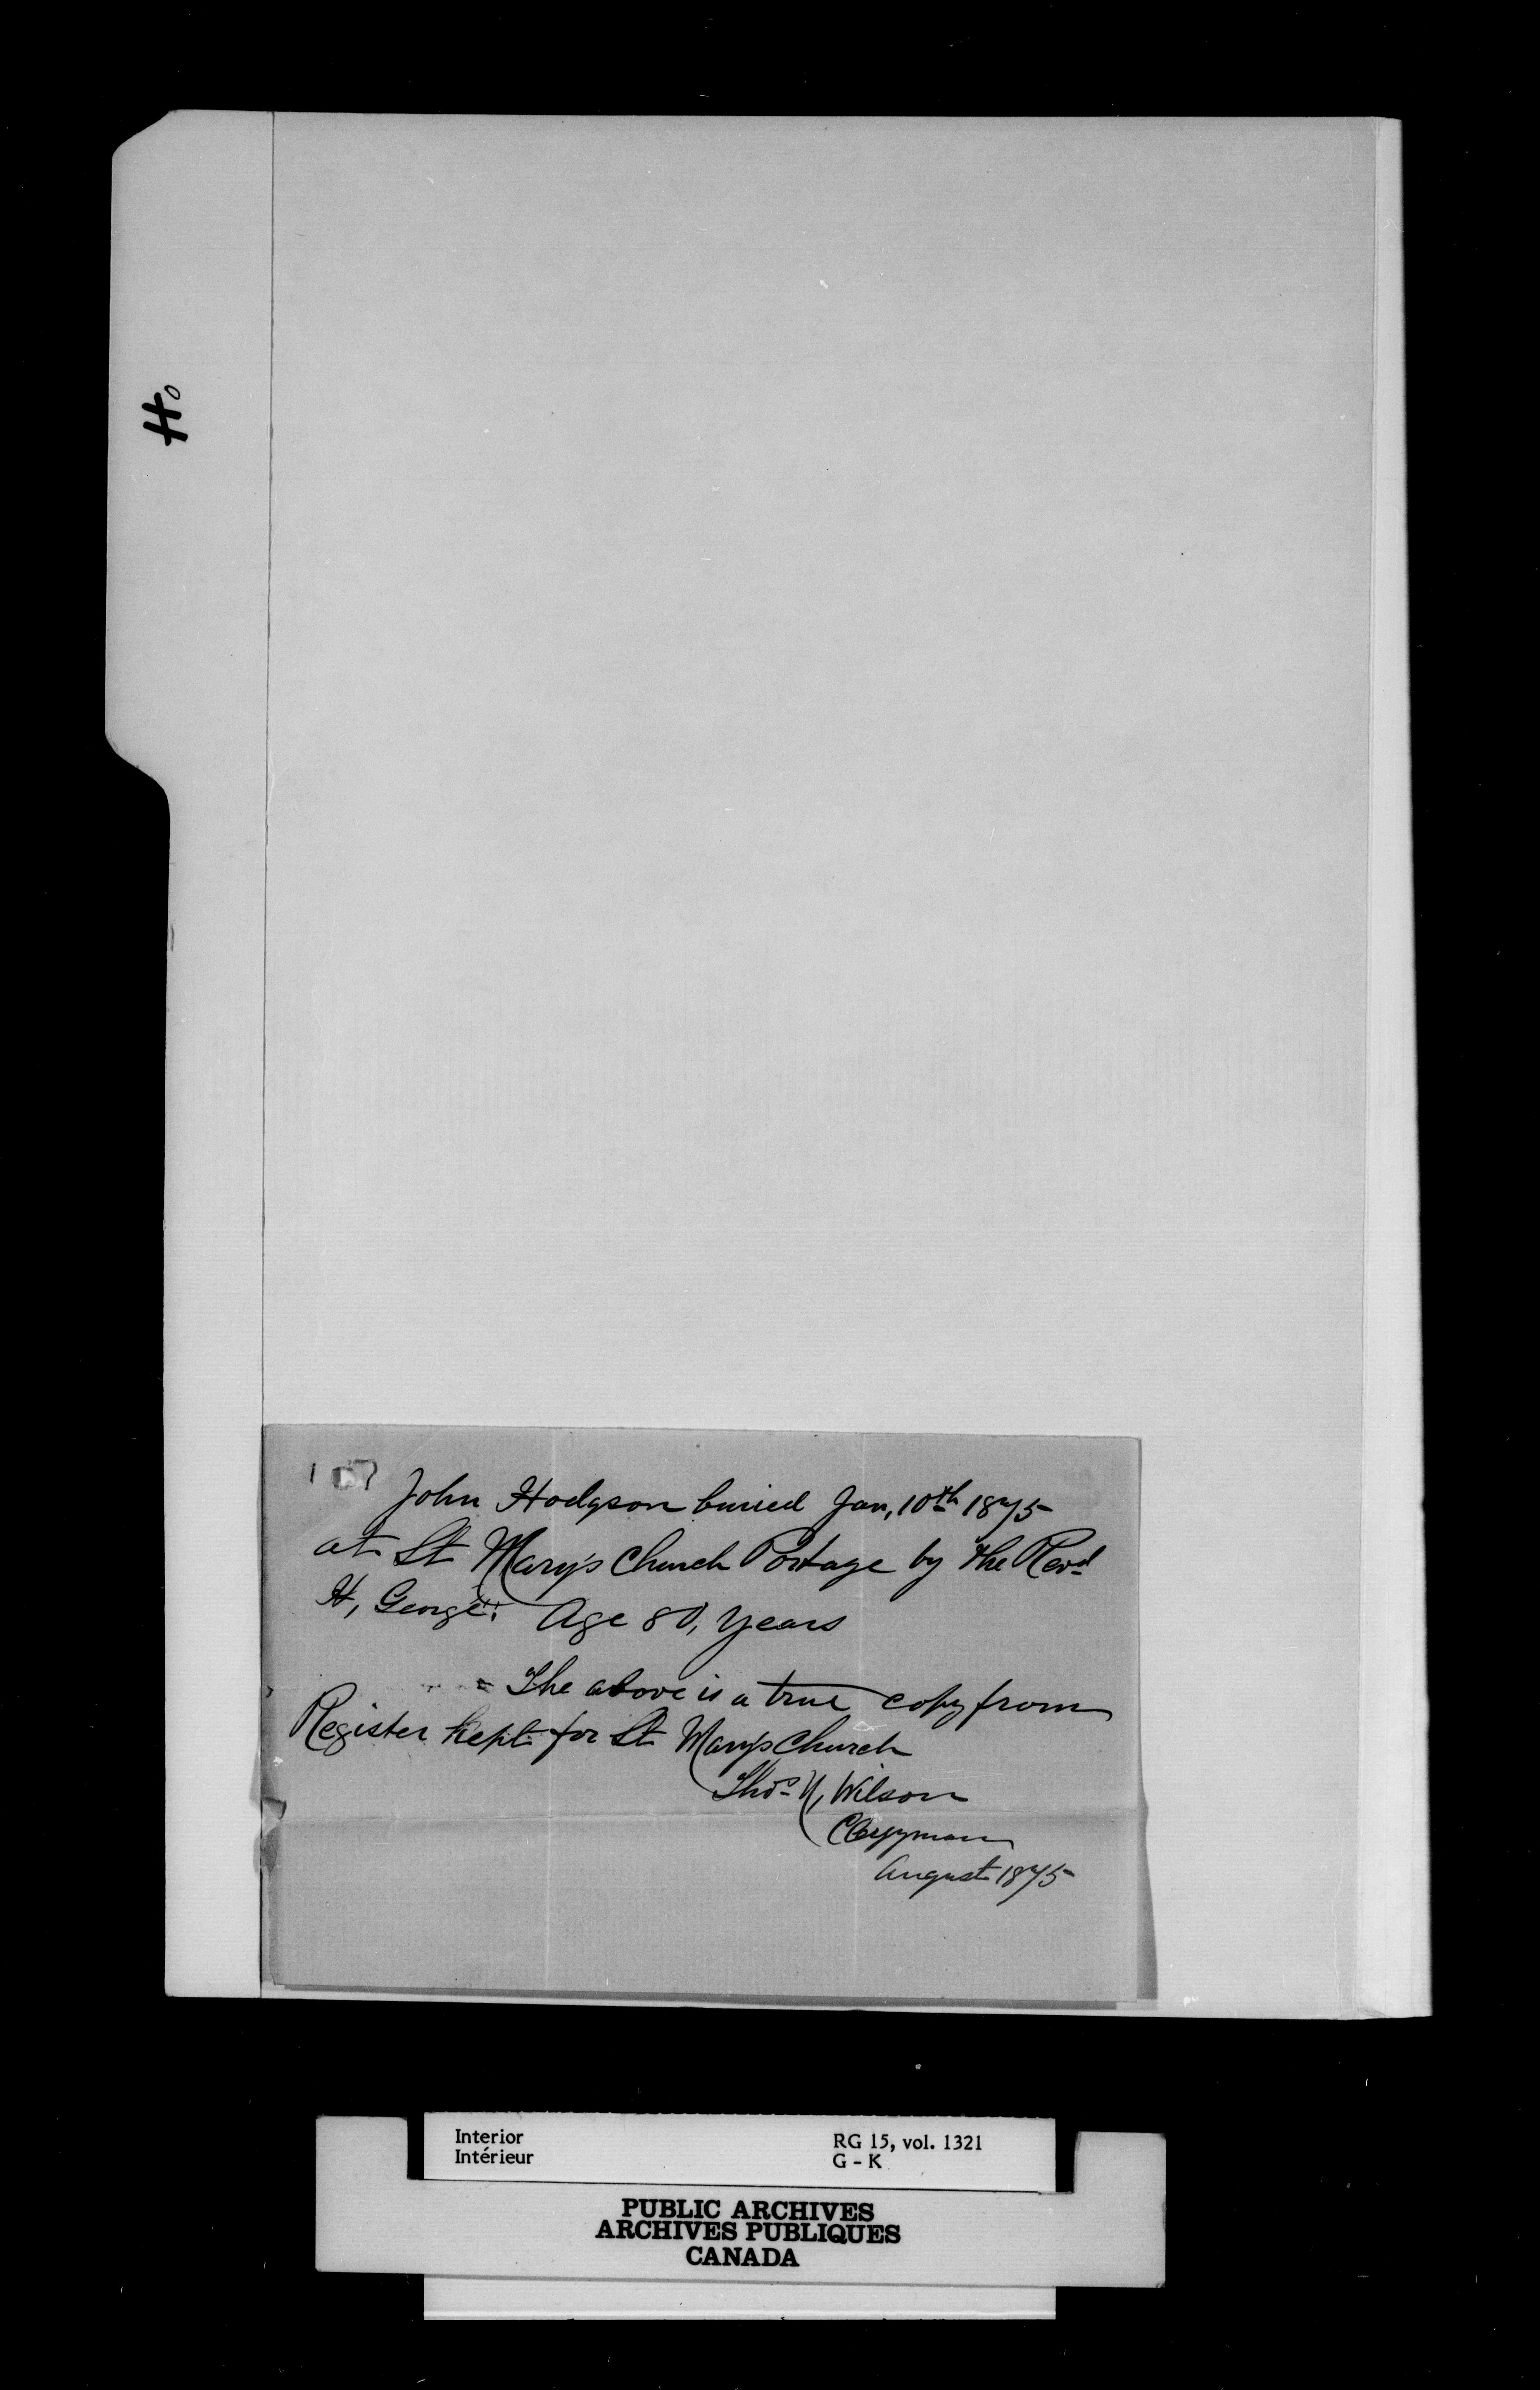 Ho
John Hodgson buried Jan, 10th 1875
at St Mary's Church Portage by the Revd
H, George: Age 80, years
The above is a true copy from
Register kept for St Mary's Church
Thos N, Wilson
Clergyman
August 1875
Interior RG 15, vol. 1321
Intérieur G - K
PUBLIC ARCHIVES
ARCHIVES PUBLIQUES
CANADA